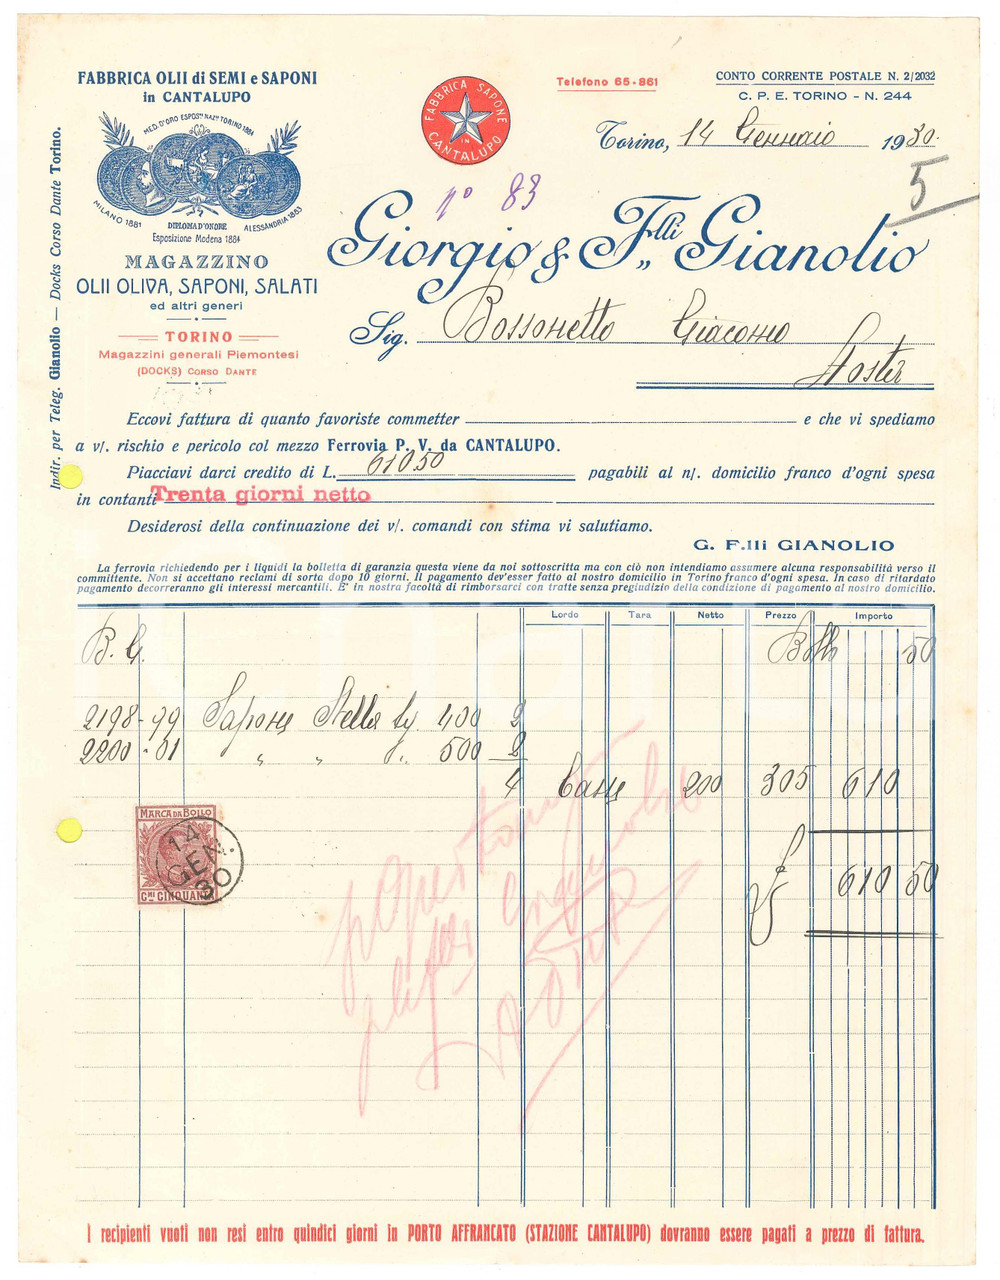 FABBRICA OLII di SEMI e SAPONI
in CANTALUPO
MED. D'ORO ESPOS.NE NAZ.LE TORINO 1884
MILANO 1881
DIPLOMA D'ONORE
ALESSANDRIA 1883
Esposizione Modena 1884
MAGAZZINO
OLII OLIVA, SAPONI, SALATI
ed altri generi
TORINO
Magazzini generali Piemontesi
(DOCKS) CORSO DANTE
Indir. per Teleg. Gianolio — Docks Corso Dante Torino.
FABBRICA SAPONE
IN
CANTALUPO
Telefono 65-861
CONTO CORRENTE POSTALE N. 2/2032
C. P. E. TORINO - N. 244
Torino, 14 Gennaio 1930.
5
n° 83
Giorgio & F.lli Gianolio
Sig. Bossonetto Giacomo
Eccovi fattura di quanto favoriste commetter e che vi spediamo
a v/. rischio e pericolo col mezzo Ferrovia P. V. da CANTALUPO.
Piacciavi darci credito di L. 610.50 pagabili al n/. domicilio franco d'ogni spesa
in contanti Trenta giorni netto
Desiderosi della continuazione dei v/. comandi con stima vi salutiamo.
G. F.lli GIANOLIO
La ferrovia richiedendo per i liquidi la bolletta di garanzia questa viene da noi sottoscritta ma con ciò non intendiamo assumere alcuna responsabilità verso il
committente. Non si accettano reclami di sorta dopo 10 giorni. Il pagamento dev'esser fatto al nostro domicilio in Torino franco d'ogni spesa. In caso di ritardato
pagamento decorreranno gli interessi mercantili. E' in nostra facoltà di rimborsarci con tratte senza pregiudizio della condizione di pagamento al nostro domicilio.
Lordo Tara Netto Prezzo Importo
B. G. Bollo 50
2198-99 Sapone Stella 400 2
2200-01 " " 500 2
4 Casse 200 305 610
610 50
MARCA DA BOLLO
C.MI CINQUANTA
14
GEN.
30
I recipienti vuoti non resi entro quindici giorni in PORTO AFFRANCATO (STAZIONE CANTALUPO) dovranno essere pagati a prezzo di fattura.